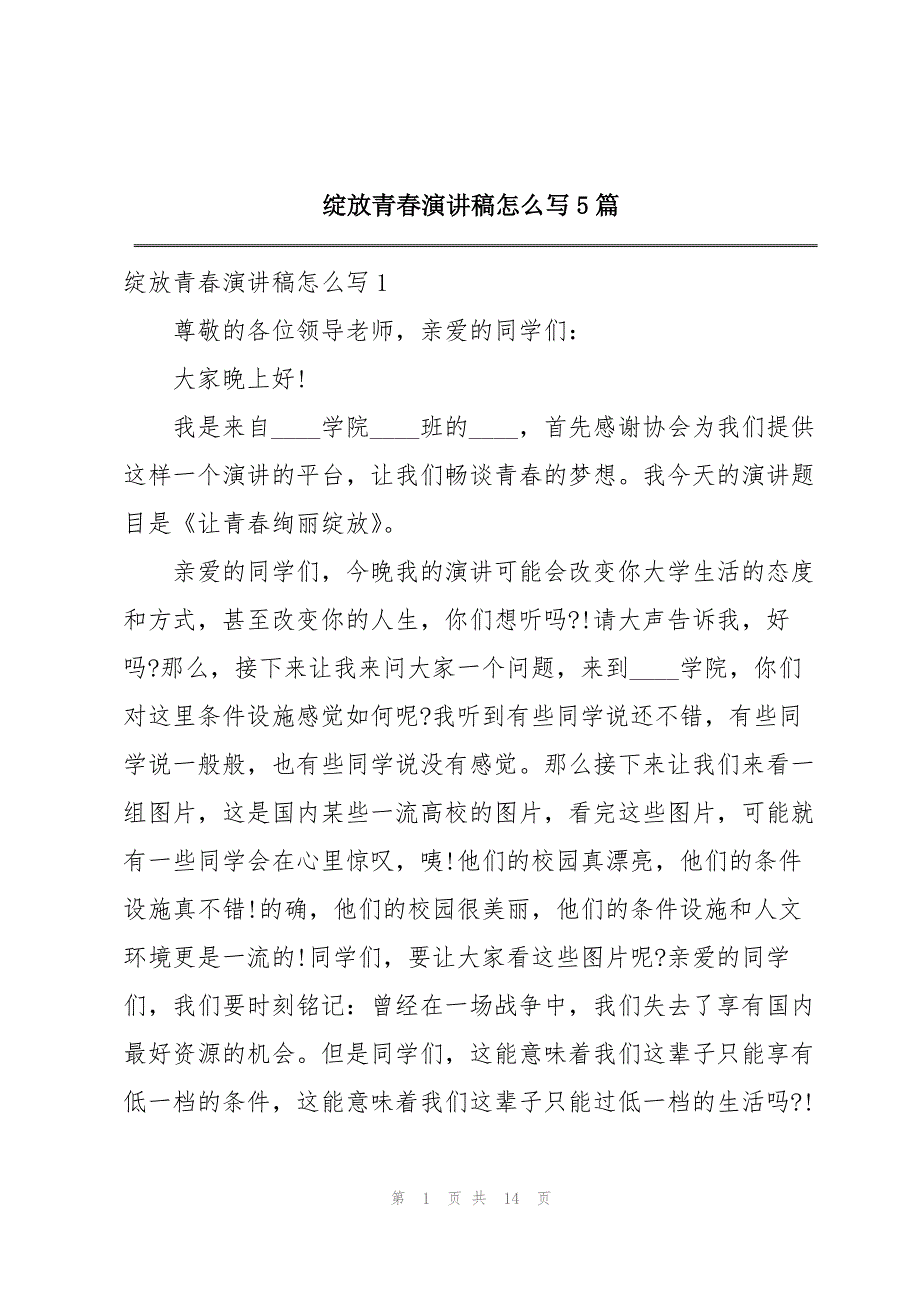 绽放青春演讲稿怎么写 5 篇
绽放青春演讲稿怎么写 1
尊敬的各位领导老师，亲爱的同学们：
大家晚上好!
我是来自____学院____班的____，首先感谢协会为我们提供
这样一个演讲的平台，让我们畅谈青春的梦想。我今天的演讲题
目是《让青春绚丽绽放》。
亲爱的同学们，今晚我的演讲可能会改变你大学生活的态度
和方式，甚至改变你的人生，你们想听吗?!请大声告诉我，好
吗?那么，接下来让我来问大家一个问题，来到____学院，你们
对这里条件设施感觉如何呢?我听到有些同学说还不错，有些同
学说一般般，也有些同学说没有感觉。那么接下来让我们来看一
组图片，这是国内某些一流高校的图片，看完这些图片，可能就
有一些同学会在心里惊叹，咦!他们的校园真漂亮，他们的条件
设施真不错!的确，他们的校园很美丽，他们的条件设施和人文
环境更是一流的!同学们，要让大家看这些图片呢?亲爱的同学
们，我们要时刻铭记：曾经在一场战争中，我们失去了享有国内
最好资源的机会。但是同学们，这能意味着我们这辈子只能享有
低一档的条件，这能意味着我们这辈子只能过低一档的生活吗?!
第 1 页 共 14 页